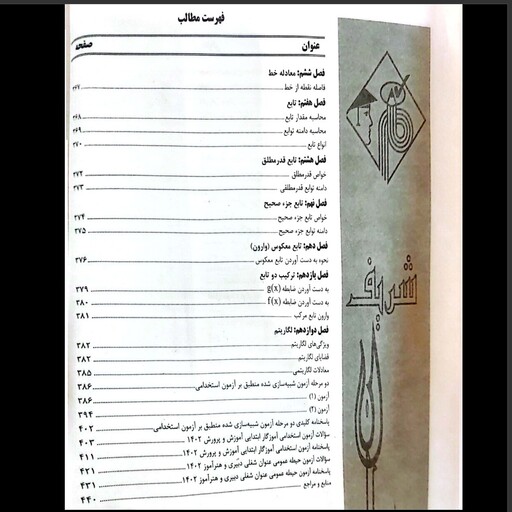 فهرست مطالب
عنوان صفحه
فصل ششم: معادله خط
فاصله نقطه از خط ۳۶۷
فصل هفتم: تابع
محاسبه مقدار تابع ۳۶۸
محاسبه دامنه توابع ۳۶۹
انواع تابع ۳۷۰
فصل هشتم: تابع قدرمطلق
خواص قدرمطلق ۳۷۲
دامنه توابع قدرمطلقی ۳۷۳
فصل نهم: تابع جزء صحیح
خواص تابع جزء صحیح ۳۷۴
دامنه تابع جزء صحیح ۳۷۵
فصل دهم: تابع معکوس (وارون)
نحوه به دست آوردن تابع معکوس ۳۷۶
فصل یازدهم: ترکیب دو تابع
به دست آوردن ضابطه g(x) ۳۷۹
به دست آوردن ضابطه f(x) ۳۸۰
وارون تابع مرکب ۳۸۱
فصل دوازدهم: لگاریتم
ویژگی‌های لگاریتم ۳۸۲
قضایای لگاریتم ۳۸۲
معادلات لگاریتمی ۳۸۵
دو مرحله آزمون شبیه‌سازی شده منطبق بر آزمون استخدامی ۳۸۶
آزمون (۱) ۳۸۶
آزمون (۲) ۳۹۴
پاسخنامه کلیدی دو مرحله آزمون شبیه‌سازی شده منطبق بر آزمون استخدامی ۴۰۲
سؤالات آزمون استخدامی آموزگار ابتدایی آموزش و پرورش ۱۴۰۲ ۴۰۳
پاسخنامه آزمون استخدامی آموزگار ابتدایی آموزش و پرورش ۱۴۰۲ ۴۱۱
سؤالات آزمون حیطه عمومی عنوان شغلی دبیری و هنرآموز ۱۴۰۲ ۴۲۱
پاسخنامه آزمون حیطه عمومی عنوان شغلی دبیری و هنرآموز ۱۴۰۲ ۴۳۱
منابع و مراجع ۴۴۰
شریف